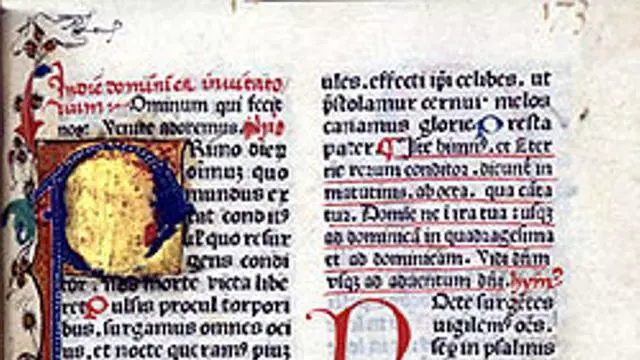 In die dominica invitato
rium Dominum qui fecit
nos: Venite adoremus. ymnus
Primo dier
oimuz quo
mundus ex
tat conditus
uł quo resur
gens condi
tor. nos morte victa libe
ret Pulsis procul torpori
bus, surgamus omnes oci
us, et nocte queramus pium
ules. effecti ipi celibes. ut
pstolamur cernui melos
canamus glorie Presta
pater Iste himnus. et Eter
ne rerum conditor. dicunt in
matutinis, ab octa. qua cāta
tur. Domine ne i ira tua: usqz
ad dominicā in quadragesima
et ad dominicam. Vidi dñm
vsqz ad aduentum dñi. hym9
Nocte surgētes
uigilem9 oēs.
sep in psalmis